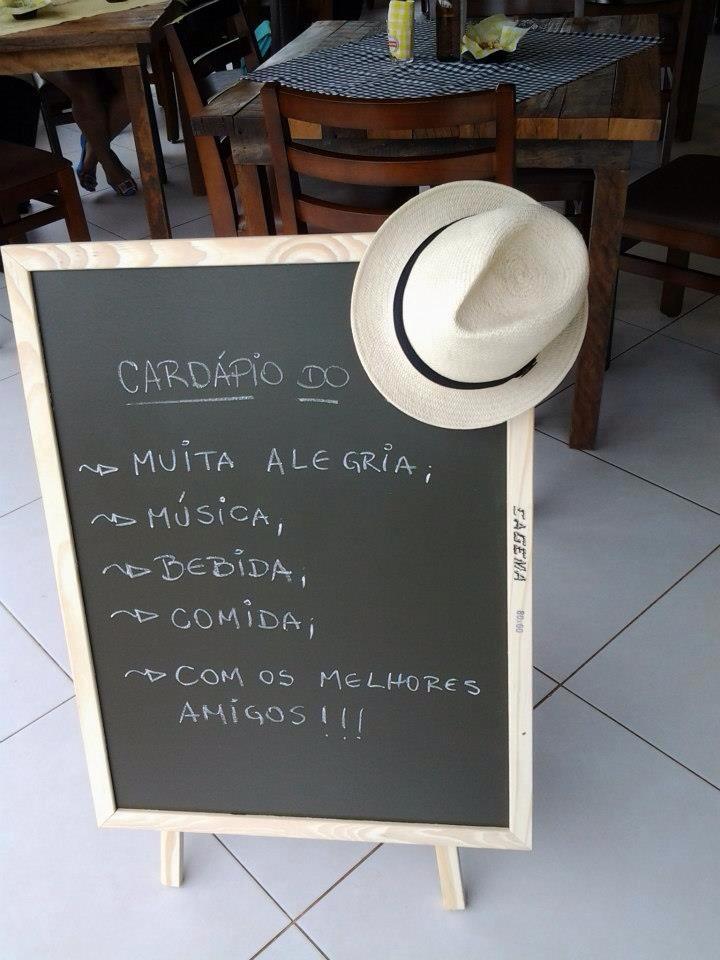 CARDÁPIO DO
MUITA ALEGRIA;
MÚSICA,
BEBIDA;
COMIDA;
COM OS MELHORES
AMIGOS!!!
SAGEMA
80x60